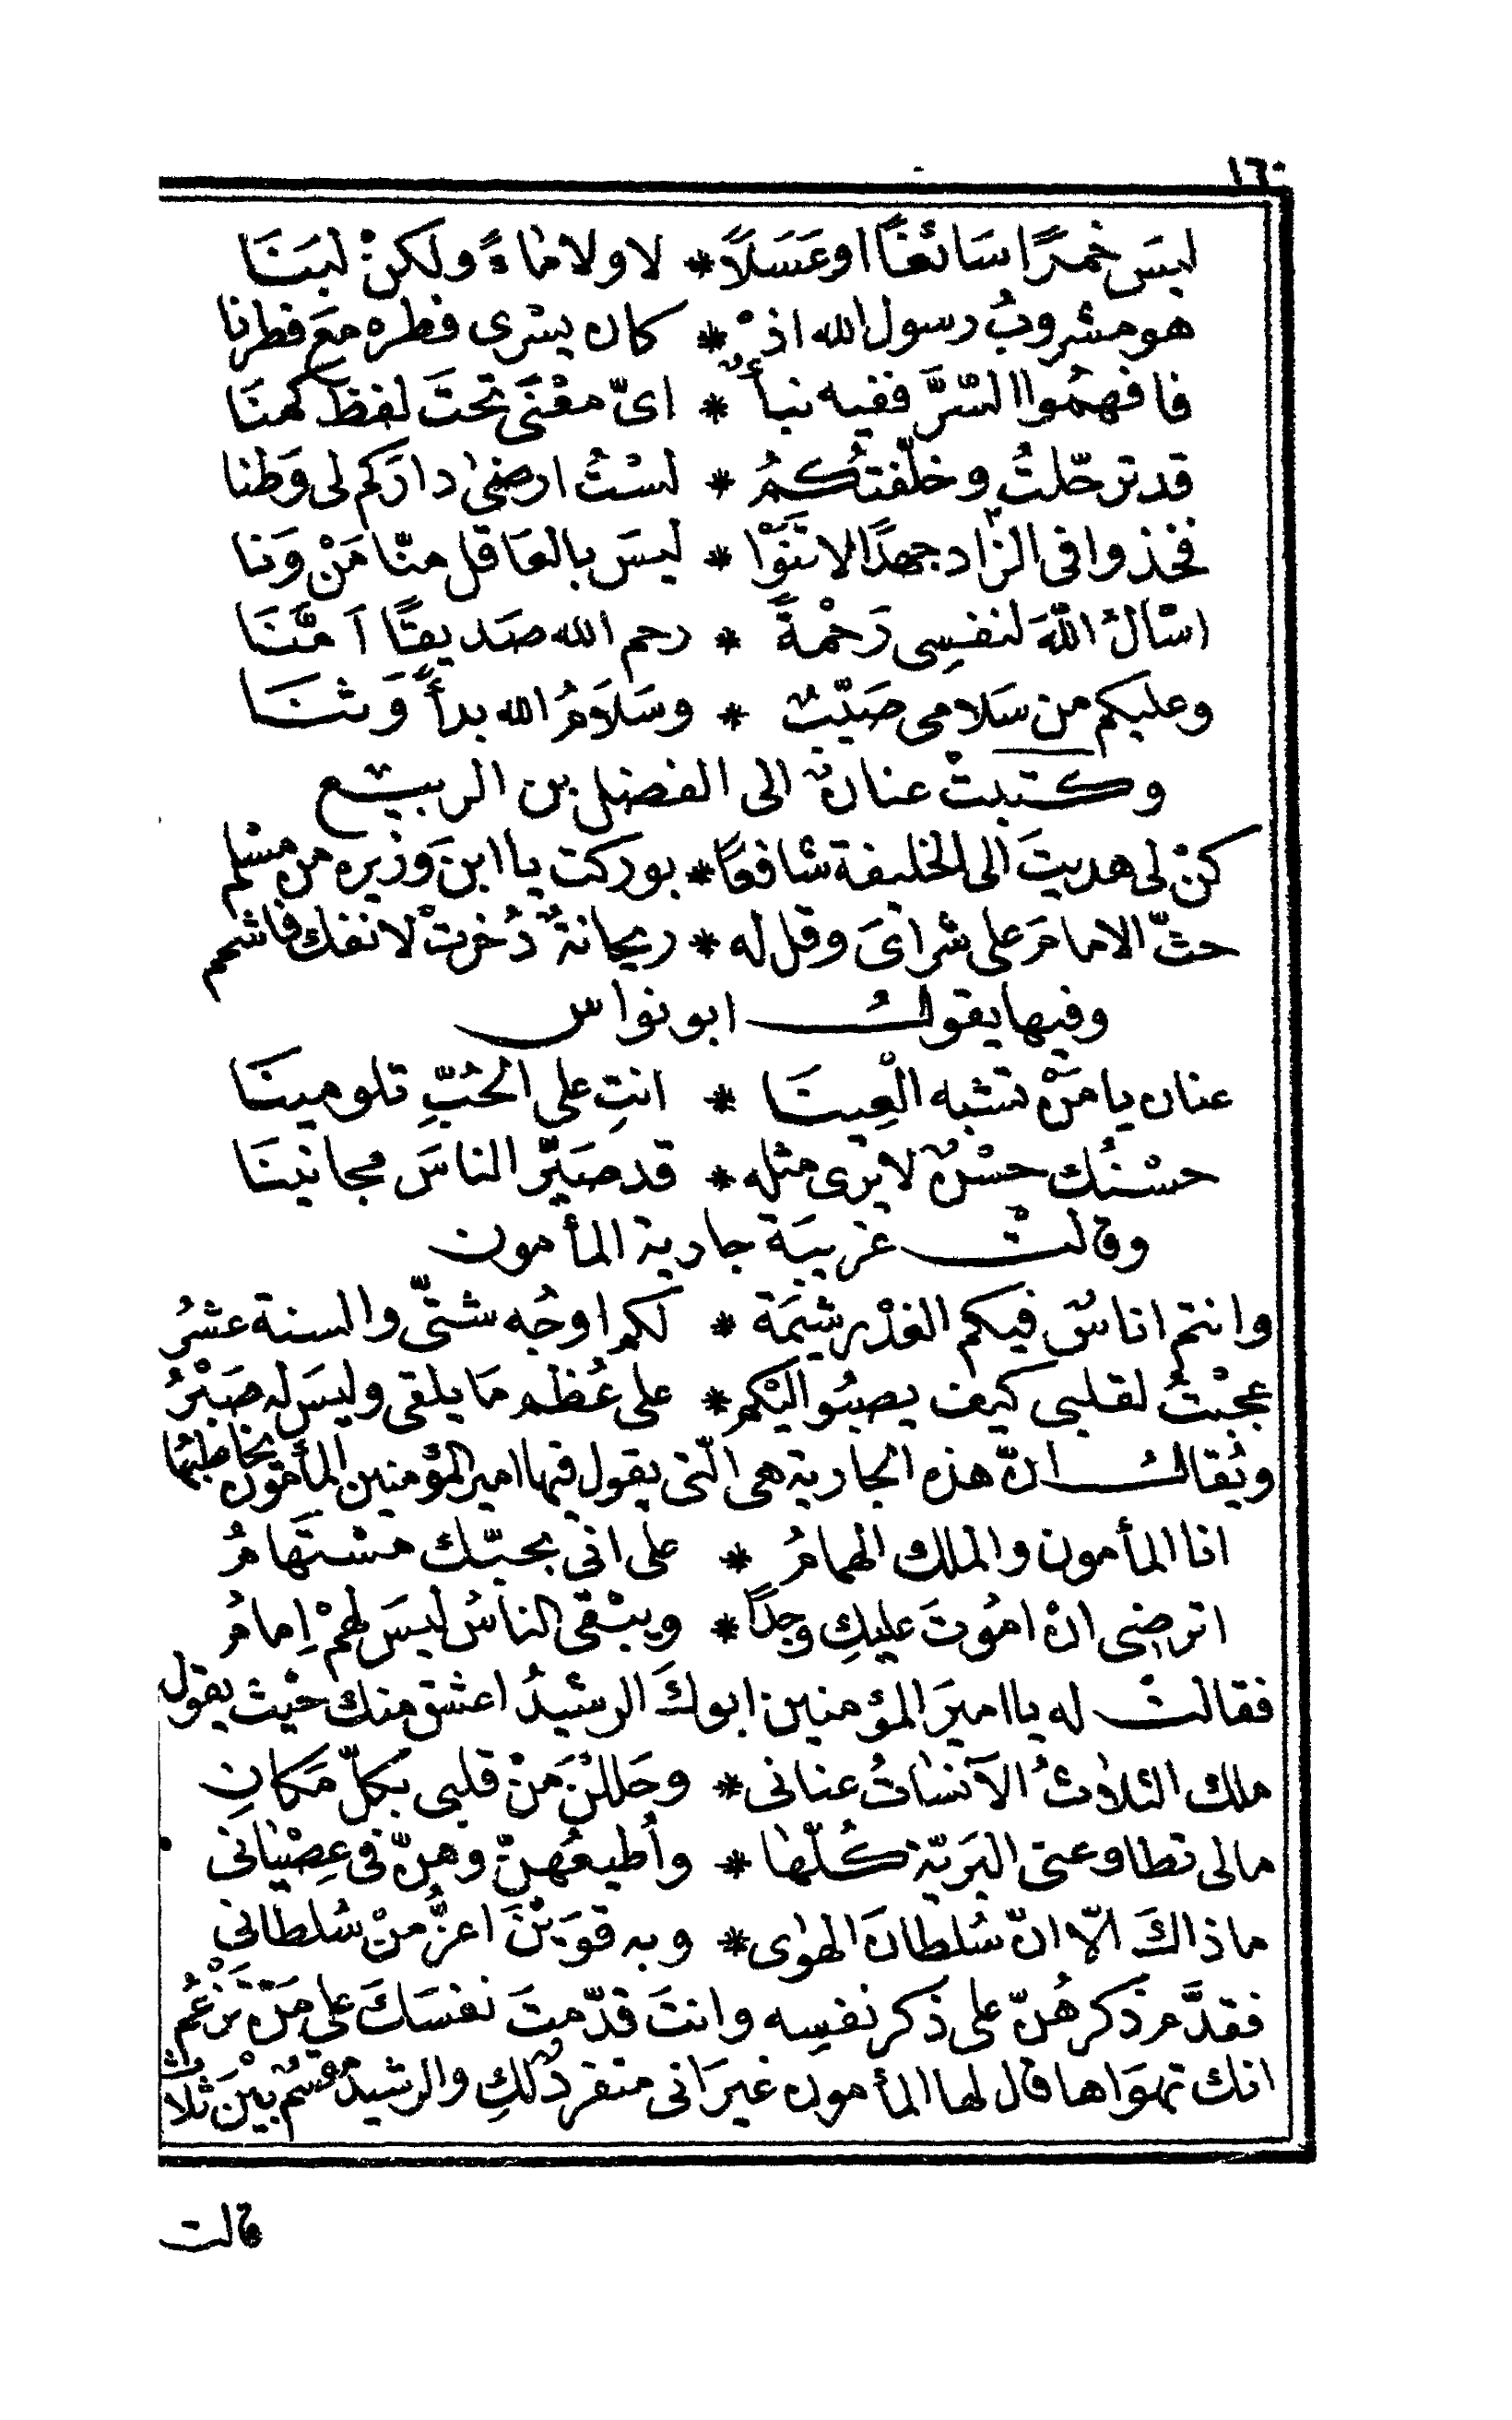 ١٦٠
ليسَ خمرًا سَائغًا اوعَسَلاً * لا ولا مٰاءً ولكنْ لبَنَا
هو مشروبُ رسول الله اذْ * كان يسْرى فطره مَع فطرنا
فافهمُوا السّرَّ ففيه نبأٌ * اىّ معْنًى تحتَ لفظ كمنَا
قد ترحّلتُ وخلّفتُكمُ * لسْتُ ارضىٰ دارَكم لى وَطنا
فخذوا فى الزّاد جهدًا لا تنَوْا * ليسَ بالعَاقل منّا مَنْ وَنا
اسْألُ اللّهَ لنفسِى رَحْمةً * رحم الله صَديقًا اَمَّنَا
وعليكم من سَلامى صَيّبٌ * وسَلاَمُ الله بدأً وَثنَا
وكتبتْ عنانٌ الى الفضل بن الربيع
كنْ لى هديتَ الى الخليفة شافعًا * بوركت يا ابنَ وزيره من مسْلم
حثّ الامامَ على شراىَ وقل له * ريحانةٌ ذُخرتْ لانفك فاشمم
وفيها يقولُ ابو نواس
عنان يا مَنْ تشبه الْعِينَا * انتِ على الحُبِّ تلومينَا
حسْنُك حسْنٌ لا يرى مثله * قد صَيّر الناسَ مجانينَا
وقالتْ غريبَة جارية المأمون
وانتم اناسٌ فيكم الغدْر شيمَة * لكم اوجُه شتّى والسنة عشرُ
عجبْتُ لقلبى كيف يصبُو اليْكم * على عُظْم مَا يلقى وليسَ له صَبْرُ
ويُقالُ انّ هذه الجارية هى الّتى يقول فيها امير المؤمنين المأمون يخاطبُها
انا المأمون والملك الهمامُ * على انى بحبّك مسْتَهَامُ
اترضى انْ امُوتَ عليكِ وجدًا * ويبْقى الناسُ ليسَ لهمْ اِمامُ
فقالتْ له يا اميرَ المؤمنين ابوكَ الرشيدُ اعشق منك حيْث يقول
ملك الثلاٰثُ الآنسٰاتُ عنانى * وحَللْنَ مَنْ قلبى بكلّ مَكانِ
مالى تطاوعنى البَريّة كُلّهٰا * وأُطيعُهنّ وهنّ فى عِصْيٰانى
ماذاكَ الّا انّ سُلطانَ الهوٰى * وبه قوَيْنَ اعزُّ منْ سُلطانى
فقدَّم ذكرهُنّ على ذكر نفسِه وانتَ قدّمتَ نفسَكَ على مَنْ تَزْعُم
انك تهوَاها قال لها المأمون غيرَ انى منفردٌ لكِ والرشيدُ مقسمٌ بيْنَ ثلاثٍ
قالت